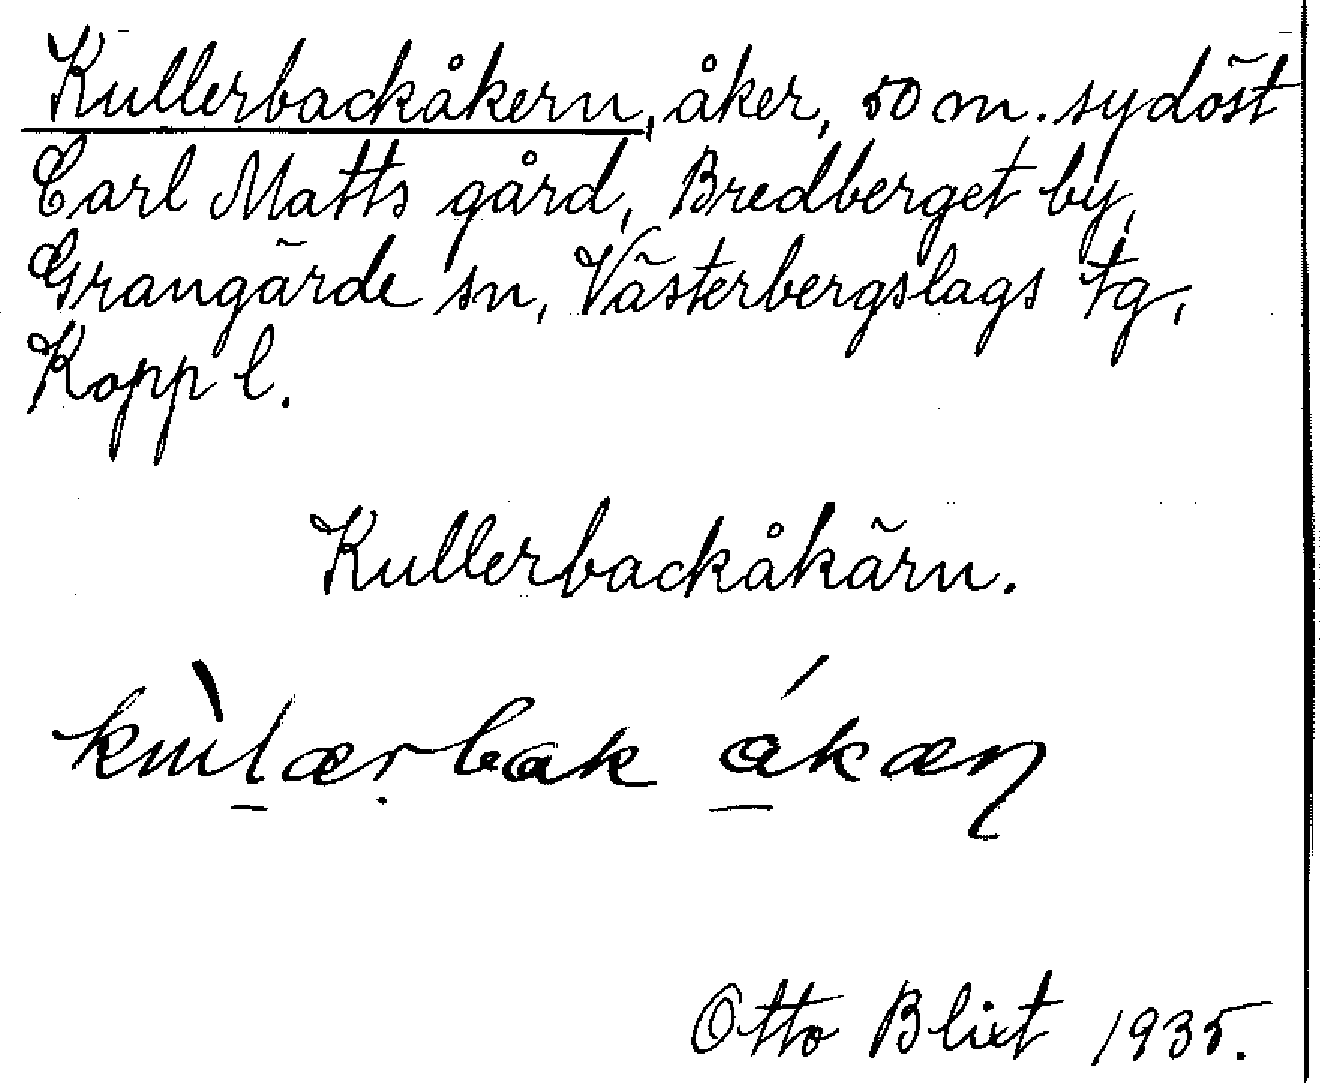 Kullerbackåkern, åker, 50 m. sydöst
Carl Matts gård, Bredberget by,
Grangärde sn, Västerbergslags tg,
Kopp l.
Kullerbackåkärn.
Otto Blixt 1935.